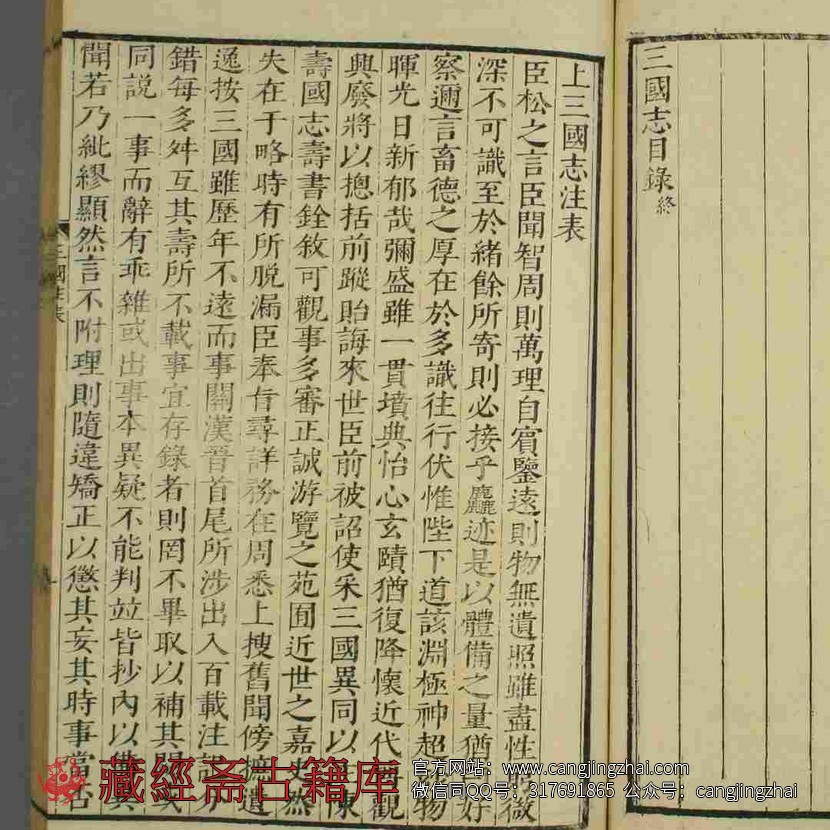 三國志目錄終
上三國志注表
臣松之言臣聞智周則萬理自賓鑒遠則物無遺照雖盡性微
深不可識至於緒餘所寄則必接乎麤迹是以體備之量猶曰好
察邇言畜德之厚在於多識往行伏惟陛下道該淵極神超妙物
暉光日新郁哉彌盛雖一貫墳典怡心玄賾猶復降懷近代觀
興廢將以摠括前蹤貽誨來世臣前被詔使采三國異同以陳
壽國志壽書銓敘可觀事多審正誠游覽之苑囿近世之嘉史然
失在于略時有所脫漏臣奉旨尋詳務在周悉上搜舊聞傍摭遺
逸按三國雖歷年不遠而事關漢晉首尾所涉出入百載注記
錯每多舛互其壽所不載事宜存錄者則罔不畢取以補其或
同說一事而辭有乖雜或出事本異疑不能判竝皆抄內以備異
聞若乃紕繆顯然言不附理則隨違矯正以懲其妄其時事當否
三國注表
藏經斋古籍库
官方网站: www.cangjingzhai.com
微信同QQ号: 317691865 公众号: cangjingzhai